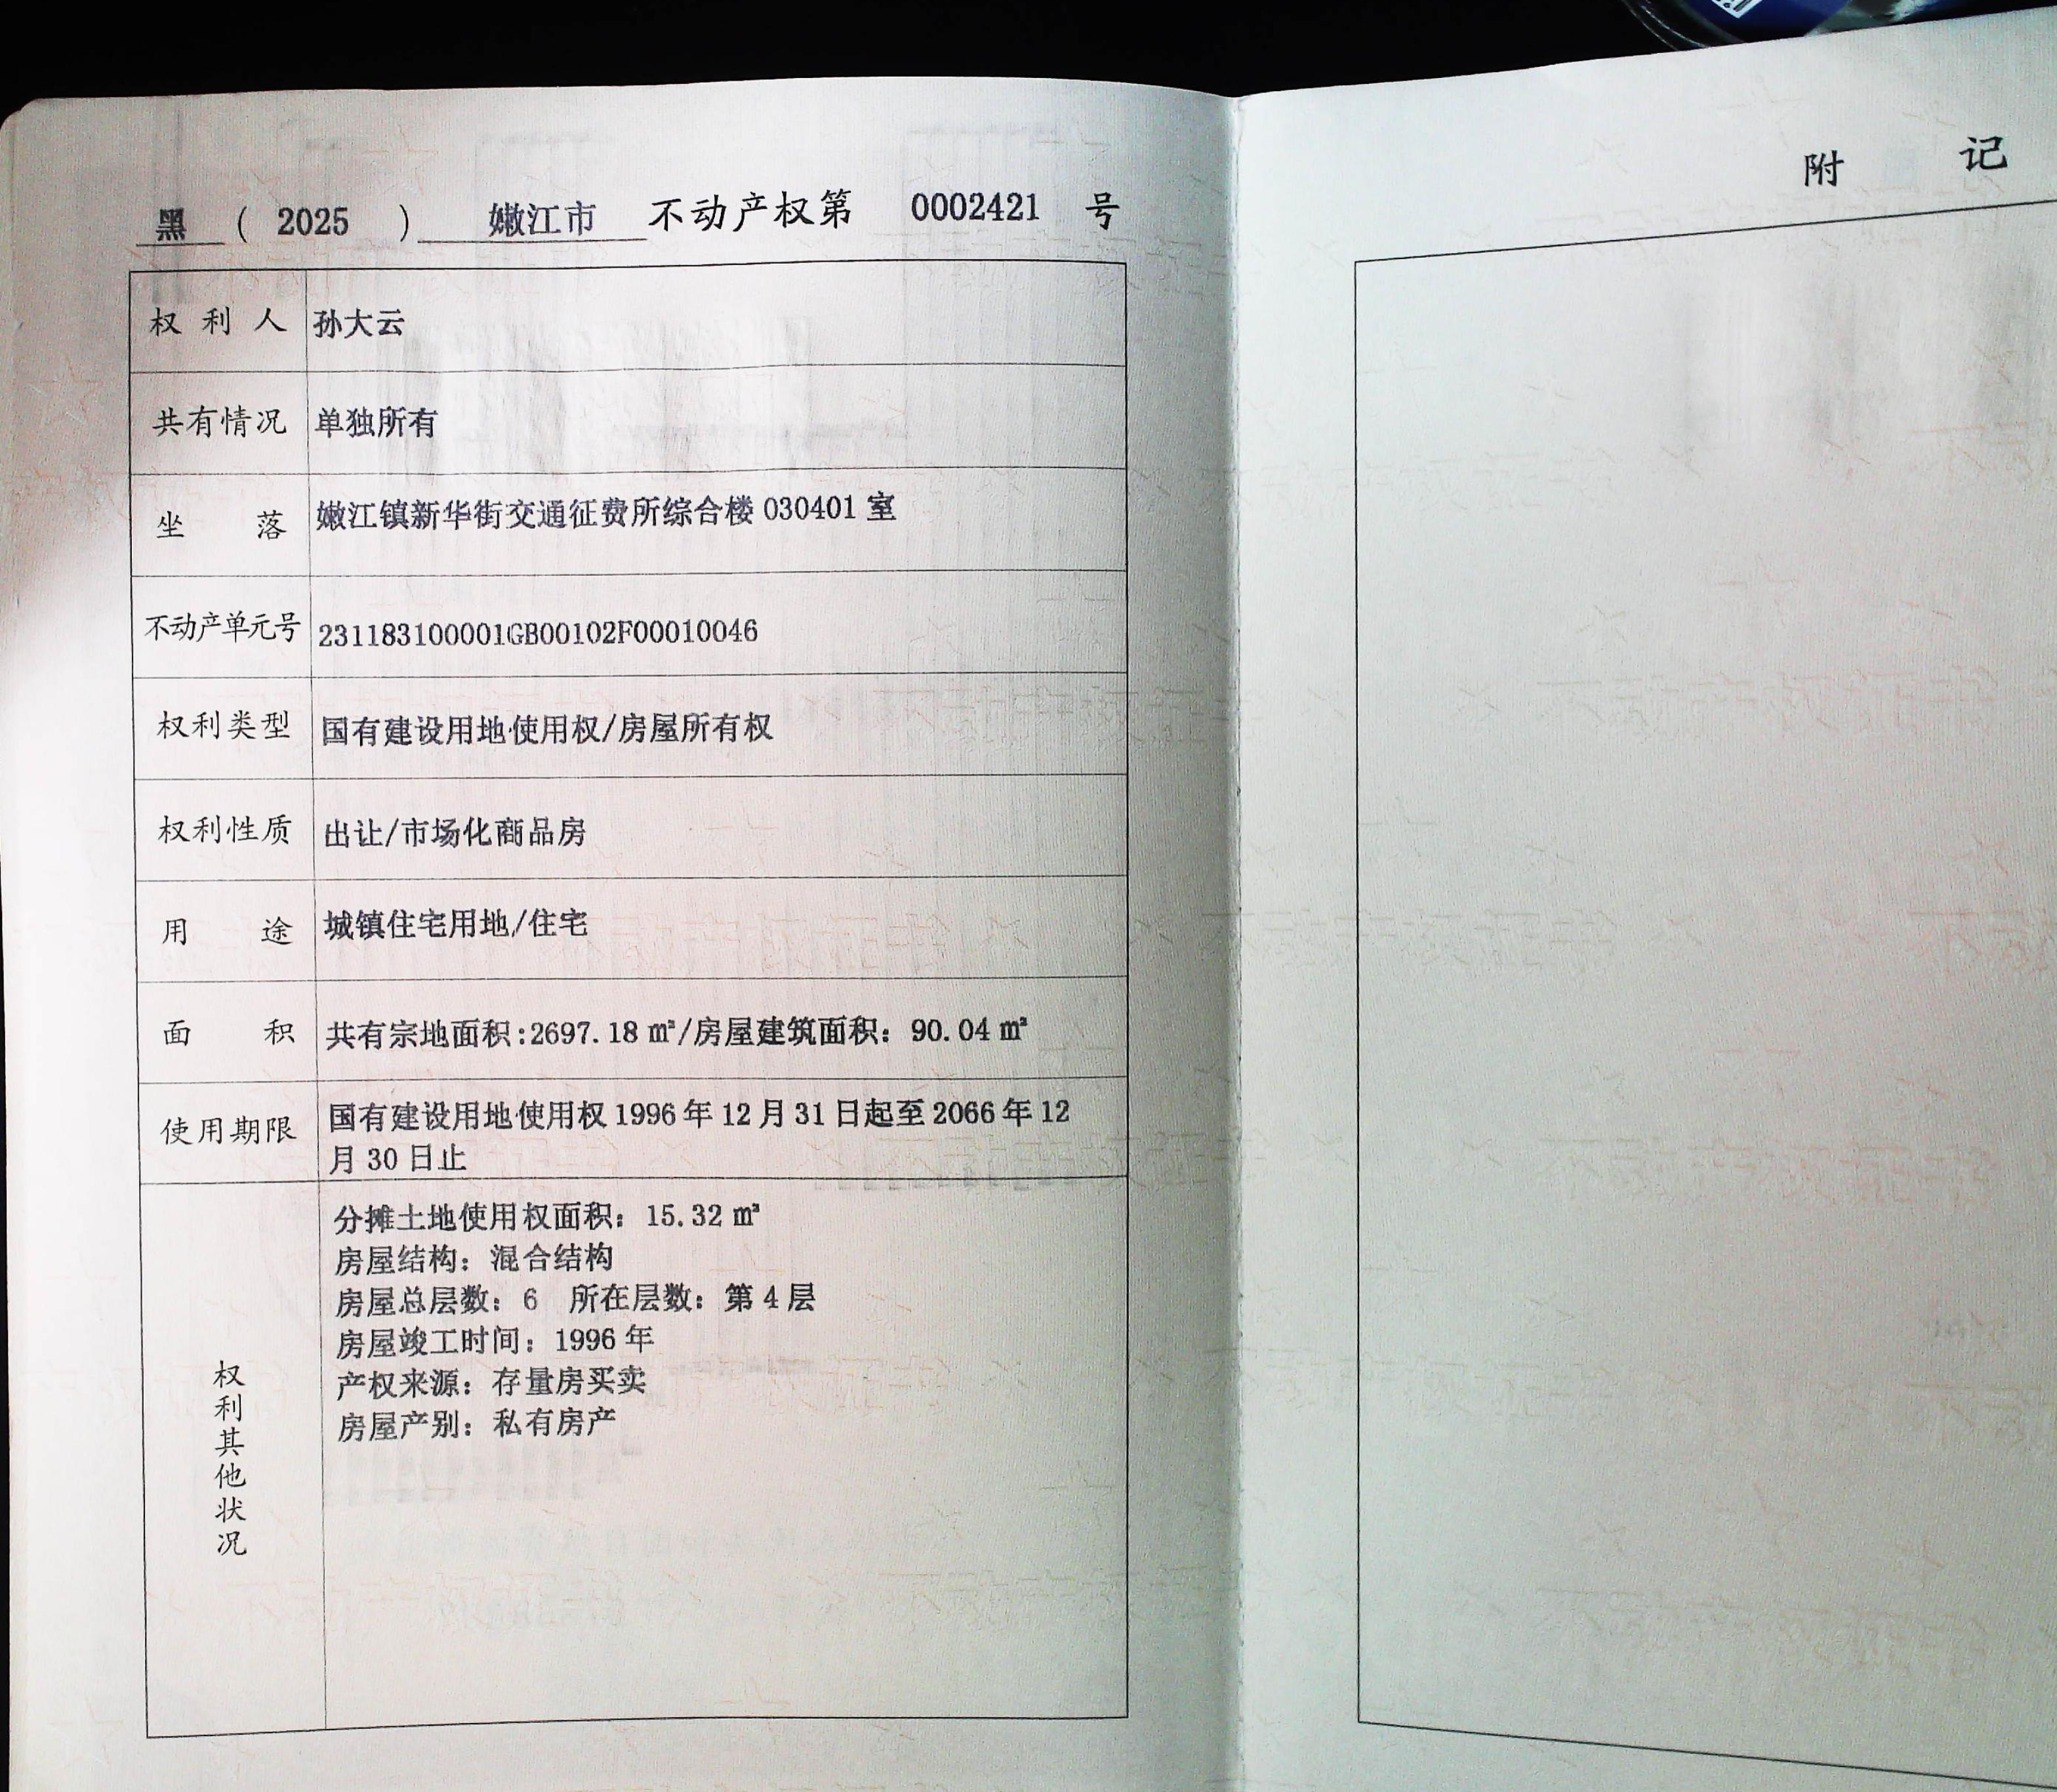 黑 ( 2025 ) 嫩江市 不动产权第 0002421 号
附 记
权利人 孙大云
共有情况 单独所有
坐落 嫩江镇新华街交通征费所综合楼 030401 室
不动产单元号 231183100001GB00102F00010046
权利类型 国有建设用地使用权/房屋所有权
权利性质 出让/市场化商品房
用途 城镇住宅用地/住宅
面积 共有宗地面积:2697.18 ㎡/房屋建筑面积：90.04 ㎡
使用期限 国有建设用地使用权 1996 年 12 月 31 日起至 2066 年 12
月 30 日止
权利其他状况
分摊土地使用权面积：15.32 ㎡
房屋结构：混合结构
房屋总层数：6 所在层数：第 4 层
房屋竣工时间：1996 年
产权来源：存量房买卖
房屋产别：私有房产